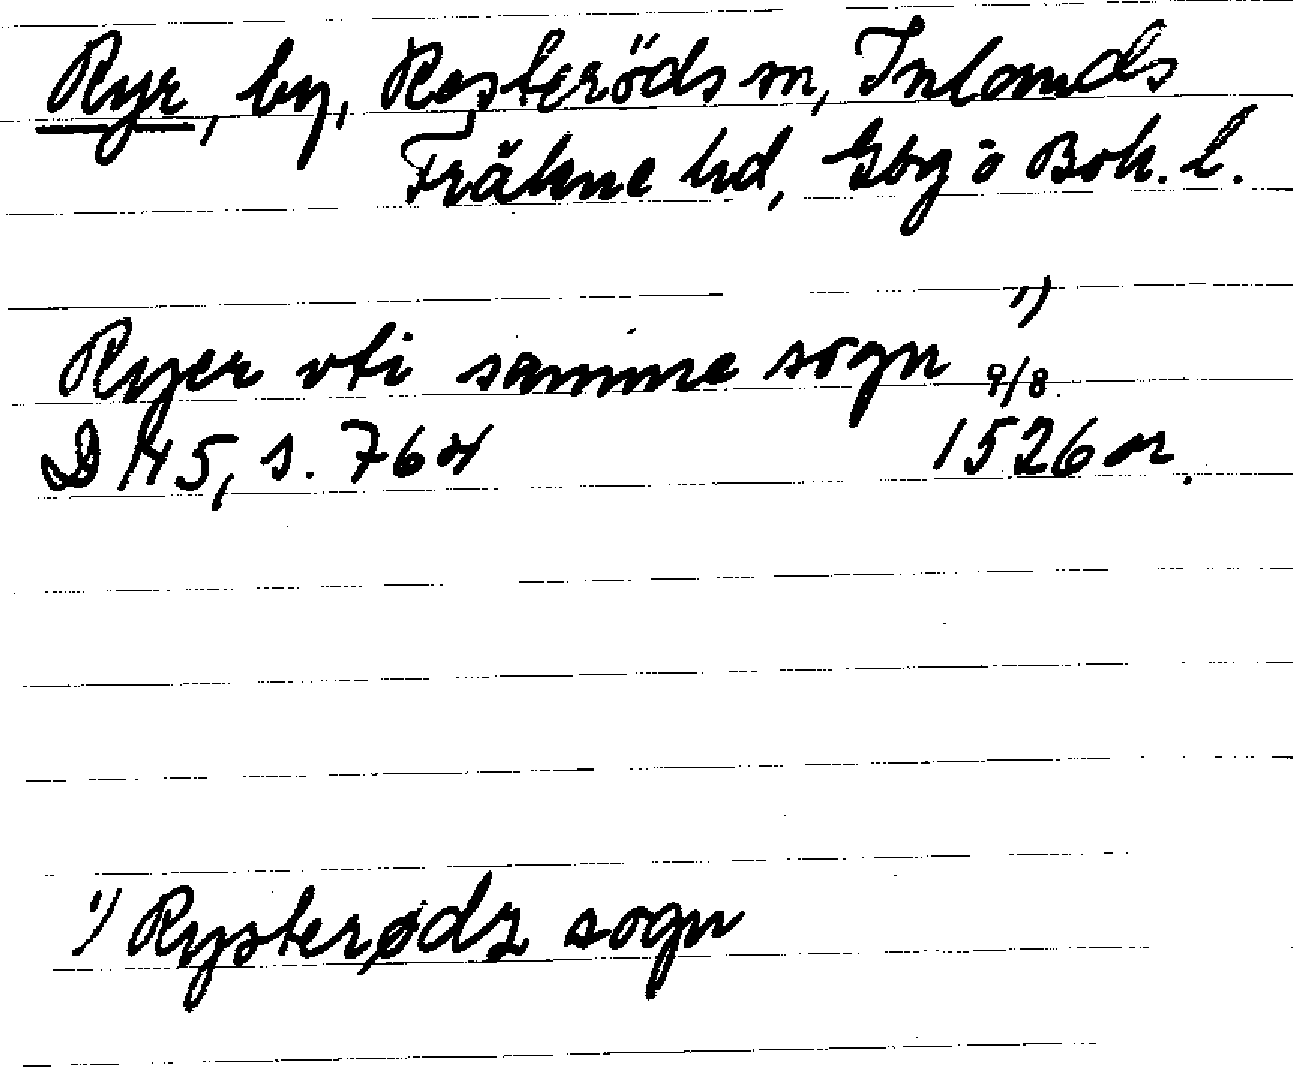 Ryr, by, Resteröds sn, Inlands
Fräkne hd, Gbg o Boh. l.
Ryer vti samme sogn 1)
9/8
D 145, s. 764 1526 or.
1) Rysterødz sogn